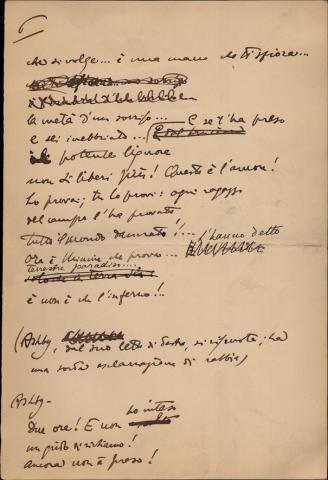 6
che si volge... è una mano che ti sfiora...
la metà d'un sorriso... E se t'ha preso
e sei inebbriato...
potente liquore
non ti liberi più! Questo è l'amore!
Lo provai; tu lo provi: ogni ragazzo
del campo l'ha provato
Tutto il mondo dannato!... l'hanno detto
Ora è Minnie che prova...
terrestre paradiso....
è non è che l'inferno!..
(Ashby, dal suo letto di Sestro, si rivolta; ha
una sorda esclamazione di rabbia)
Ashby -
Due ore! E non ho inteso
un grido di richiamo!
Ancora non è preso!